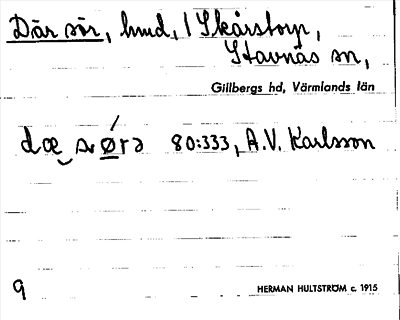 Där sör, hmd, i Skårstorp,
Stavnäs sn,
Gillbergs hd, Värmlands län
80:333, A.V. Karlsson
9
HERMAN HULTSTRÖM c. 1915